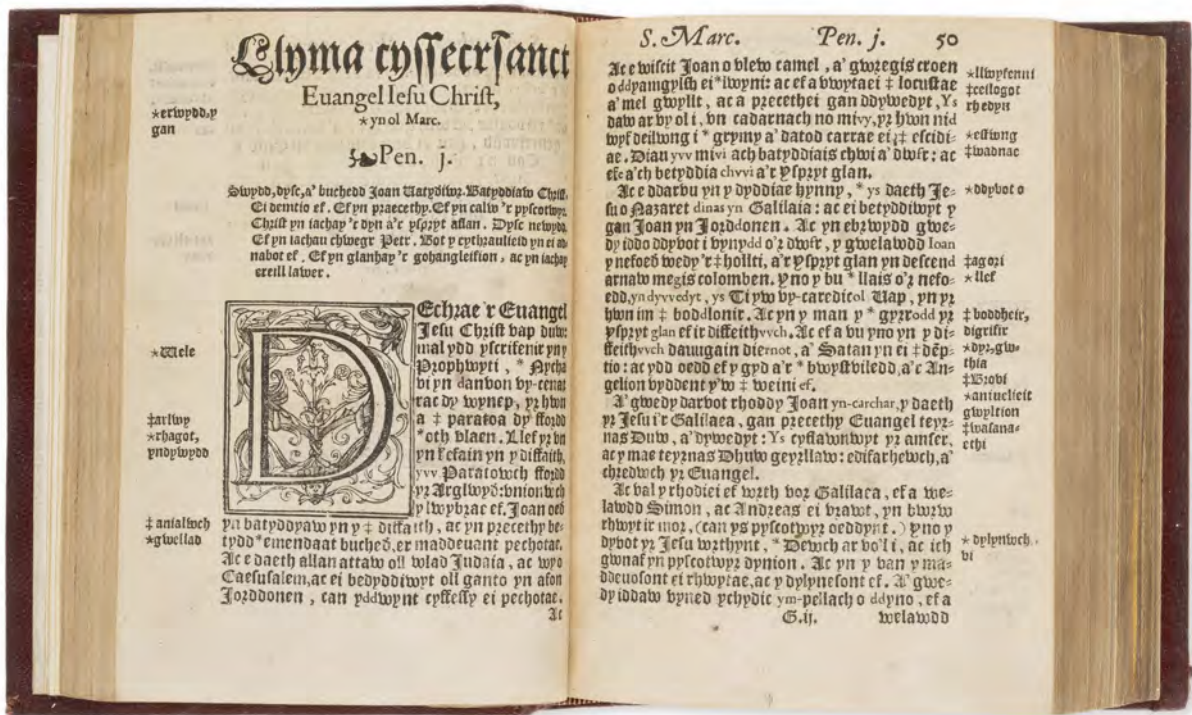 Llyma cyssecrsanct
Euangel Iesu Christ,
*yn ol Marc.
*erwydd, y
gan
Pen. j.
Swydd, dysc, a' buchedd Joan Vatyddiwr. Batyddiaw Christ.
Ei demtio ef. Ef yn praecethy. Ef yn calw 'r pyscotwyr.
Christ yn iachay 'r dyn a'r yspryt aflan. Dysc newydd.
Ef yn iachau chwegr Petr. Bot y cythraulieid yn ei ad-
nabot ef. Ef yn glanhay 'r gohangleifion, ac yn iachay
ereill lawer.
DEchrae 'r Euangel
Jesu Christ vap duw:
mal ydd yscrifenir yny
Prophwyti, * Nycha
vi yn danvon vy-cenat
rac dy wynep, yr hwn
a ‡ paratoa dy ffordd
*oth vlaen. Llef yr vn
yn llefain yn y diffaith,
yvv Paratowch ffordd
yr Arglwydd: vnionwch
y lwybrae ef. Joan oedd
yn batyddyaw yn y ‡ diffaith, ac yn precethy be-
tydd *emendaat bucheð, er maddeuant pechotae.
Ac e daeth allan attaw oll wlad Judaia, ac wyr
Caerusalem, ac ei bedyddiwyt oll ganto yn afon
Jorddonen, can yddwynt cyffessy ei pechotae.
Ac
*Wele
‡arlwy
*rhagot,
yndywydd
‡ anialwch
*gwellad
S. Marc. Pen. j. 50
Ac e wiscit Joan o vlew camel, a' gwregis croen
o ddyamgylch ei *lwyni: ac ef a vwytaei ‡ locustae
a' mel gwyllt, ac a precethei gan ddywedyt, Ys
daw ar vy ol i, vn cadarnach no mivy, yr hwn nid
wyf deilwng i * grymy a' datod carrae ei ‡ escidi-
ae. Dian yvv mivi ach batyddiais chwi a' dwfr: ac
efe a'ch betyddia chvvi a'r Yspryt glan.
Ac e ddarvu yn y dyddiae hynny, * ys daeth Je-
su o Nazaret dinas yn Galilaia: ac ei betyddiwyt y
gan Joan yn Jorddonen. Ac yn ebrwydd gwe-
dy iddo ddyvot i vynydd o'r dwfr, y gwelawdd Ioan
y nefoeð wedy 'r ‡ hollti, a'r Yspryt glan yn descend
arnaw megis colomben. Yno y bu * llais o'r nefo-
edd, yn dyvvedyt, ys Ti yw vy-caredicol Vap, yn yr
hwn im ‡ boddlonir. Ac yn y man y * gyrrodd yr
Yspryt glan ef ir diffeithvvch. Ac ef a bu yno yn y di-
ffeithvvch dauugain diernot, a' Satan yn ei ‡ dēp-
tio: ac ydd oedd ef y gyd a'r * bwystviledd, a'r An-
gelion vyddent y'w ‡ weini ef.
A' gwedy darvot rhoddy Joan yn-carchar, y daeth
yr Jesu i'r Galilaea, gan precethy Euangel teyr-
nas Duw, a' dywedyt: Ys cyflawnwyt yr amser,
ac y mae teyrnas Dhuw geyrllaw: edifarhewch, a'
chredwch yr Euangel.
Ac val y rhodiei ef wrth vor Galilaea, ef a we-
lawdd Simon, ac Andreas ei vrawt, yn bwrw
rhwyt ir mor, (can ys pyscotwyr oeddynt.) Yno y
dyvot yr Jesu wrthynt, * Dewch ar vo'l i, ac ich
gwnaf yn pyscotwyr dynion. Ac yn y van y ma-
ddeuosont ei rhwytae, ac y dylynesont ef. A' gwe-
dy iddaw vyned ychydic ym-pellach o ddyno, ef a
G.ij. welawdd
*llwyfenni
‡ceilogot
rhedyn
*estwng
‡wadnae
*ddyvot o
‡agori
*llef
‡ boddheir,
digrifir
*dyr, gw-
thia
‡Brovi
*aniueilieit
gwylltion
‡wasana-
ethi
* dylynwch
vi